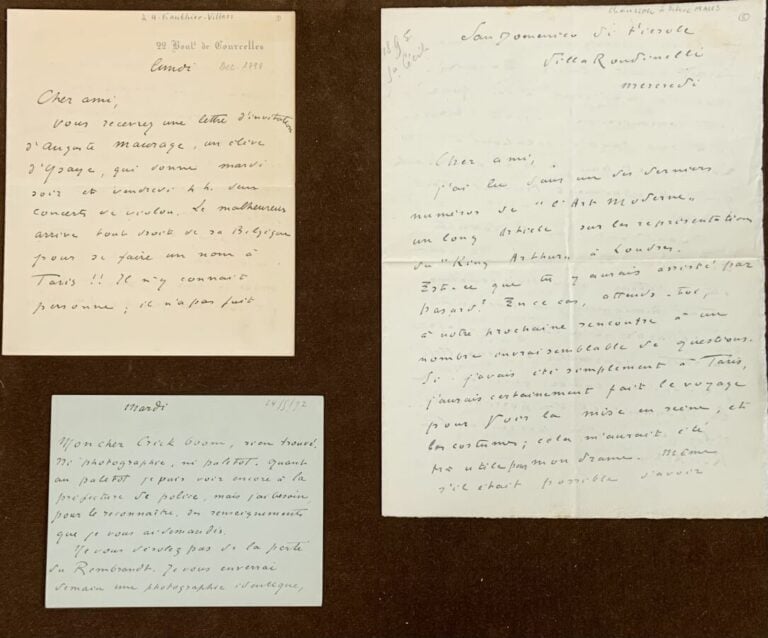 à H. Gauthier-Villars
①
22 Boul.ᵈ de Courcelles
lundi Dec 1898
Cher ami,
vous recevrez une lettre d'invitation
d'Auguste Maurage, un élève
d'Ysaye, qui donne mardi
soir et vendredi 4 h. deux
concerts de violon. Le malheureux
arrive tout droit de sa Belgique
pour se faire un nom à
Paris !! Il n'y connait
personne ; il n'a pas fait
mardi
Mon cher Crickboom, rien trouvé.
Ni photographie, ni paletot. Quant
au paletot je puis voir encore à la
préfecture de police, mais j'ai besoin,
pour le reconnaître, des renseignements
que je vous ai demandés.
Ne vous désolez pas de la perte
du Rembrandt. Je vous enverrai
demain une photographie identique,
MAUS
1895
San Domenico di Fiesole
Villa Rondinelli
mercredi
Cher ami,
j'ai lu dans un des derniers
numéros de "l'Art Moderne"
un long article sur les représentations
du "King Arthur" à Londres.
Est-ce que tu y aurais assisté par
hasard? En ce cas, attends-toi,
à notre prochaine rencontre à un
nombre invraisemblable de questions.
Si j'avais été simplement à Paris,
j'aurais certainement fait le voyage
pour voir la mise en scène, et
les costumes; cela m'aurait été
très utile pour mon drame. Même
s'il était possible d'avoir